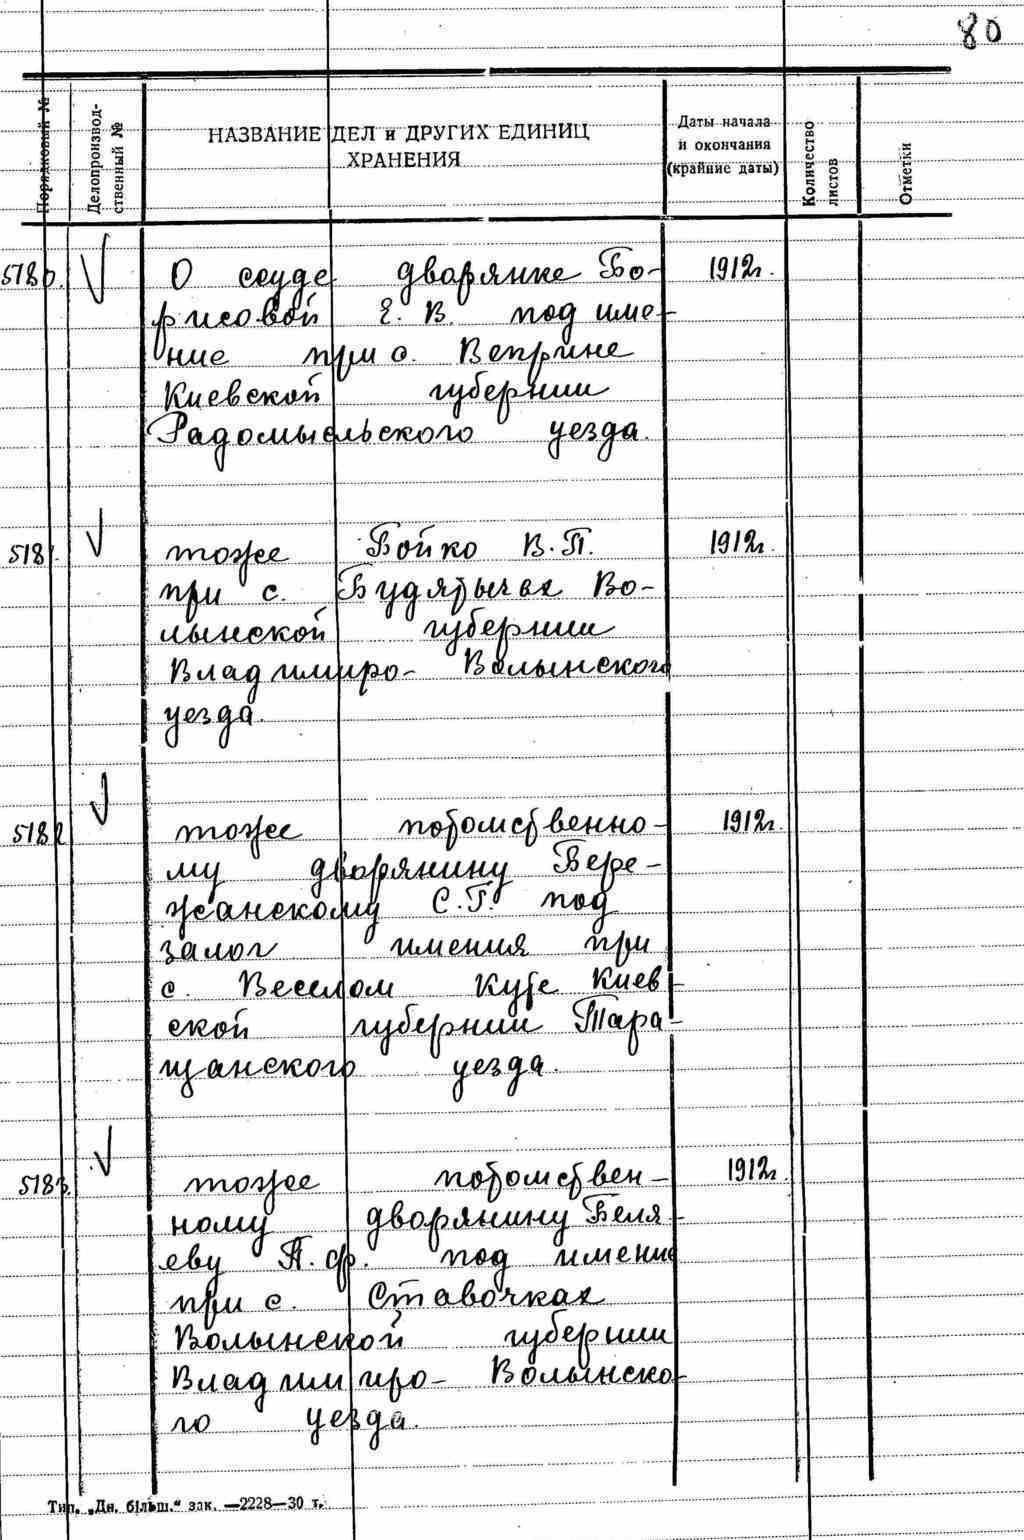 80
Порядковый №
Делопроизвод-
ственный №
НАЗВАНИЕ ДЕЛ и ДРУГИХ ЕДИНИЦ
ХРАНЕНИЯ
Даты начала
и окончания
(крайние даты)
Количество
листов
Отметки
5180. О ссуде дворянке Бо- 1912г.
рисовой Е. В. под име-
ние при с. Веприне
Киевской губернии
Радомысльского уезда.
5181. тоже Бойко В.П. 1912г.
при с. Будятычах Во-
лынской губернии
Владимиро- Волынского
уезда.
5182 тоже потомственно- 1912г.
му дворянину Бере-
жанскому С.Г. под
залог имения при
с. Веселом Куте Киев-
ской губернии Тара-
щанского уезда.
5183. тоже потомствен- 1912г.
ному дворянину Беля-
еву П.Ф. под имение
при с. Ставочках
Волынской губернии
Владимиро- Волынско-
го уезда.
Тип. „Дн. більш.“ зак. —2228—30 т.